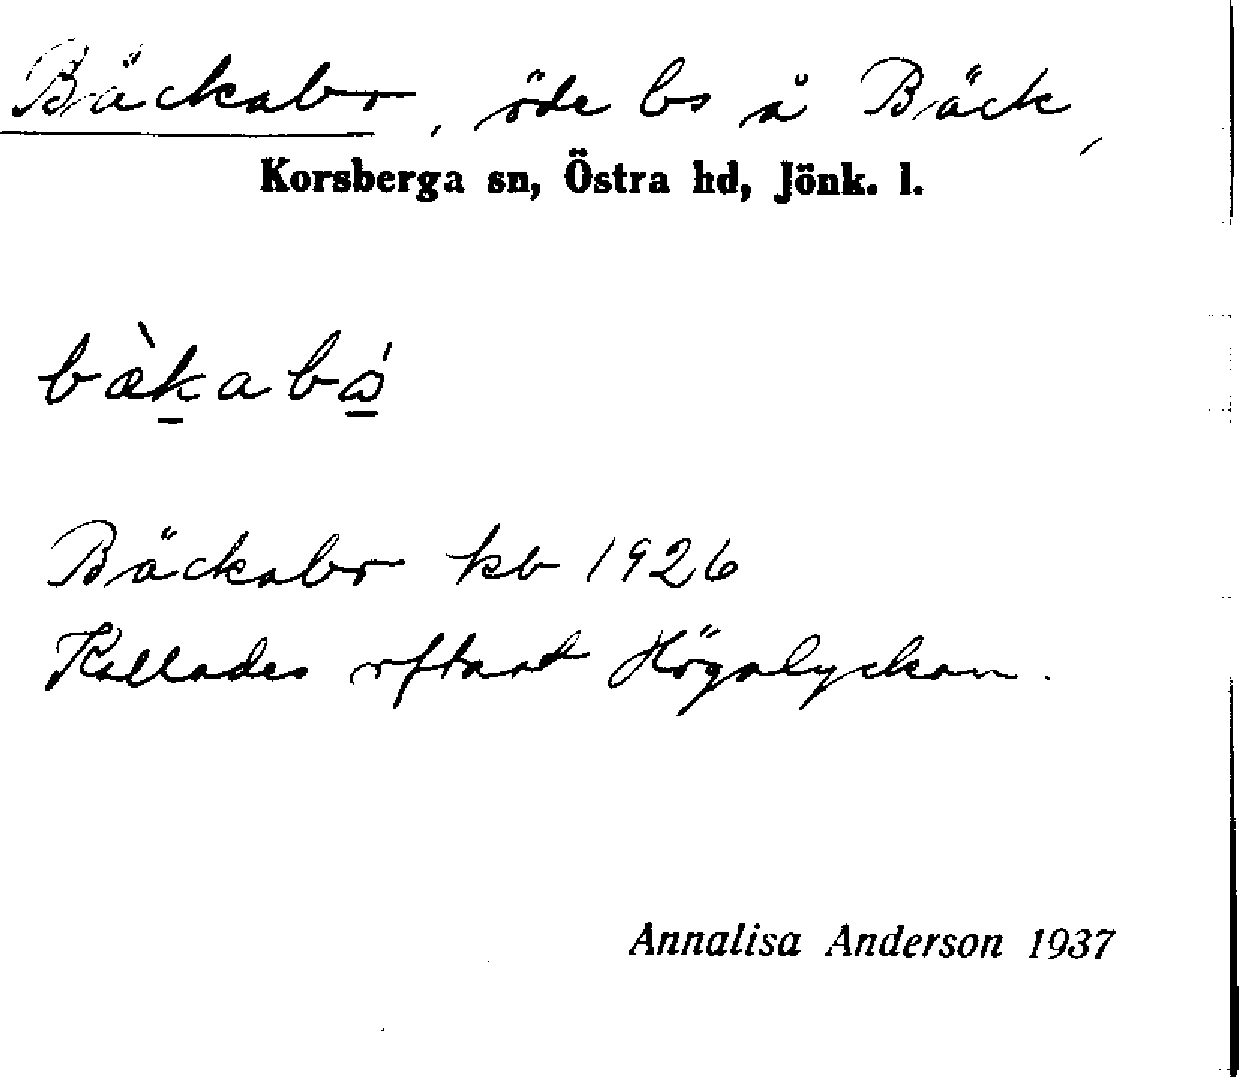 Bäckabo, öde bs å Bäck,
Korsberga sn, Östra hd, Jönk. l.
Bäckabo kb 1926
Kallades oftast Högalyckan.
Annalisa Anderson 1937